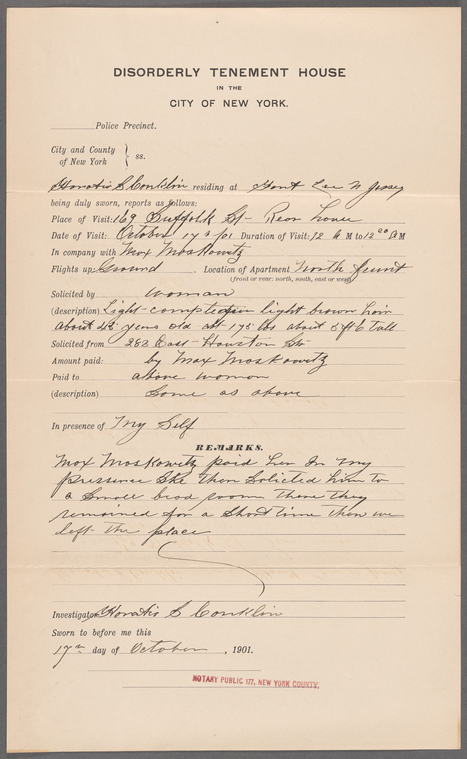 DISORDERLY TENEMENT HOUSE
IN THE
CITY OF NEW YORK.
Police Precinct.
City and County
of New York } ss.
Horatio S Conklin residing at Font Lee N Jersey
being duly sworn, reports as follows:
Place of Visit: 169 Suffolk St- Rear house
Date of Visit: October 17th/01 Duration of Visit: 12 M to 12 M
In company with Max Moskowitz
Flights up: Ground Location of Apartment North front
(front or rear: north, south, east or west)
Solicited by woman
(description) Light complexion light brown hair
about 45 years old abt 175 lbs about 5 ft 6 tall
Solicited from 282 East Houston St-
Amount paid: by Max Moskowitz
Paid to above woman
(description) Same as above
In presence of My Self
REMARKS.
Max Moskowitz paid her In my
pressence She then Solicited him to
a Small bead room there they
remained for a Short time then we
left the place
Investigator Horatio S Conklin
Sworn to before me this
17th day of October, 1901.
NOTARY PUBLIC 177, NEW YORK COUNTY.